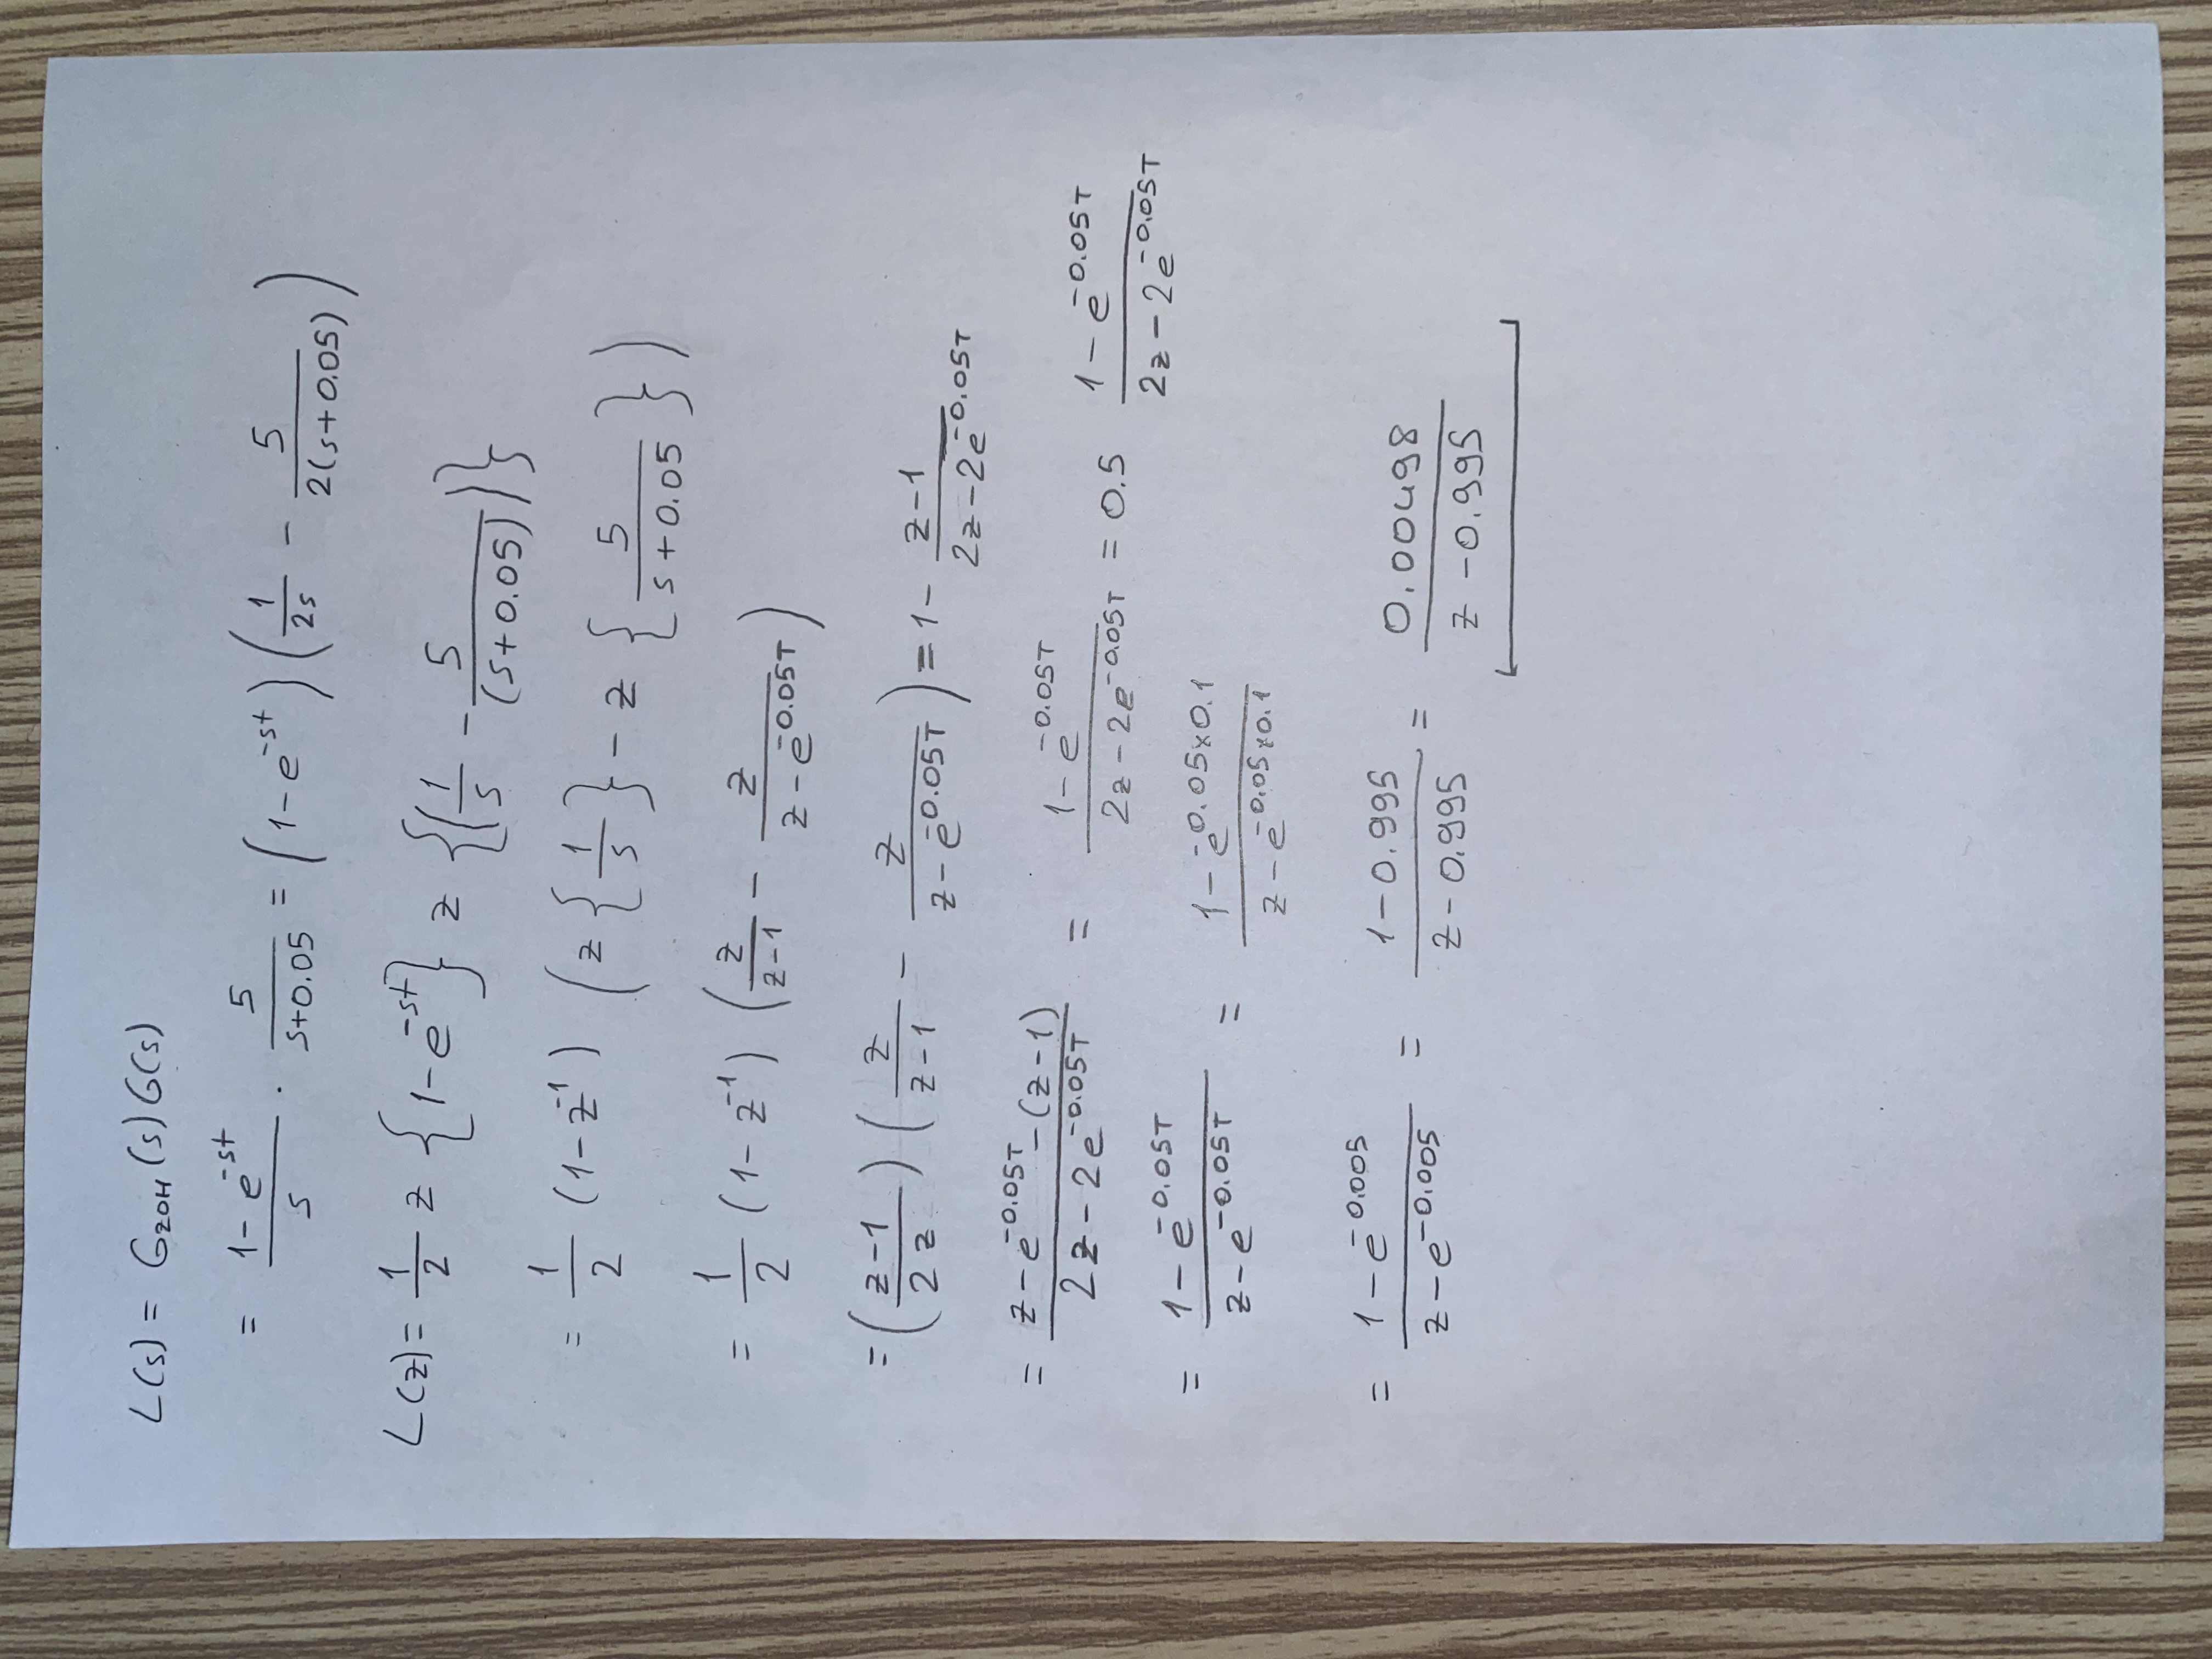 L(s) = G_ZOH (s) G(s)
= \frac{1-e^{-st}}{s} \cdot \frac{5}{s+0.05} = (1-e^{-st}) (\frac{1}{2s} - \frac{5}{2(s+0.05)})
L(z) = \frac{1}{2} z \{1-e^{-st}\} z \{(\frac{1}{s} - \frac{5}{(s+0.05)})\}
= \frac{1}{2} (1-z^{-1}) (z \{\frac{1}{s}\} - z \{\frac{5}{s+0.05}\})
= \frac{1}{2} (1-z^{-1}) (\frac{z}{z-1} - \frac{z}{z-e^{-0.05T}})
= (\frac{z-1}{2z}) (\frac{z}{z-1} - \frac{z}{z-e^{-0.05T}}) = 1 - \frac{z-1}{2z-2e^{-0.05T}}
= \frac{z-e^{-0.05T}-(z-1)}{2z-2e^{-0.05T}} = \frac{1-e^{-0.05T}}{2z-2e^{-0.05T}} = 0.5 \frac{1-e^{-0.05T}}{2z-2e^{-0.05T}}
= \frac{1-e^{-0.05T}}{z-e^{-0.05T}} = \frac{1-e^{-0.05×0.1}}{z-e^{-0.05×0.1}}
= \frac{1-e^{-0.005}}{z-e^{-0.005}} = \frac{1-0.995}{z-0.995} = \frac{0.00498}{z-0.995}